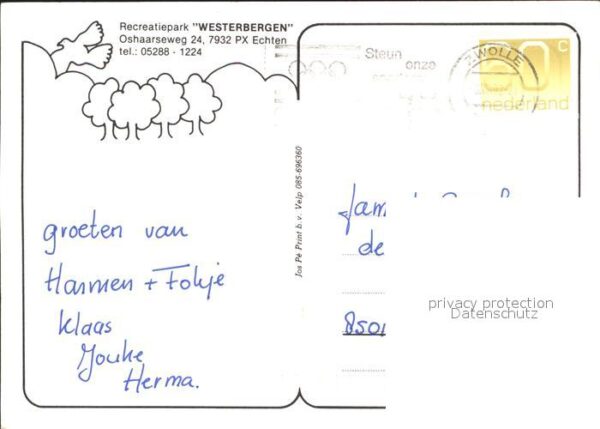 Recreatiepark "WESTERBERGEN"
Oshaarseweg 24, 7932 PX Echten
tel.: 05288 - 1224
Steun
onze
ZWOLLE
50 C
nederland
Jos Pé Print b.v. Velp 085-696360
groeten van
Harmen + Fokje
Klaas
Jouke
Herma.
Jam
de
8501
privacy protection
Datenschutz